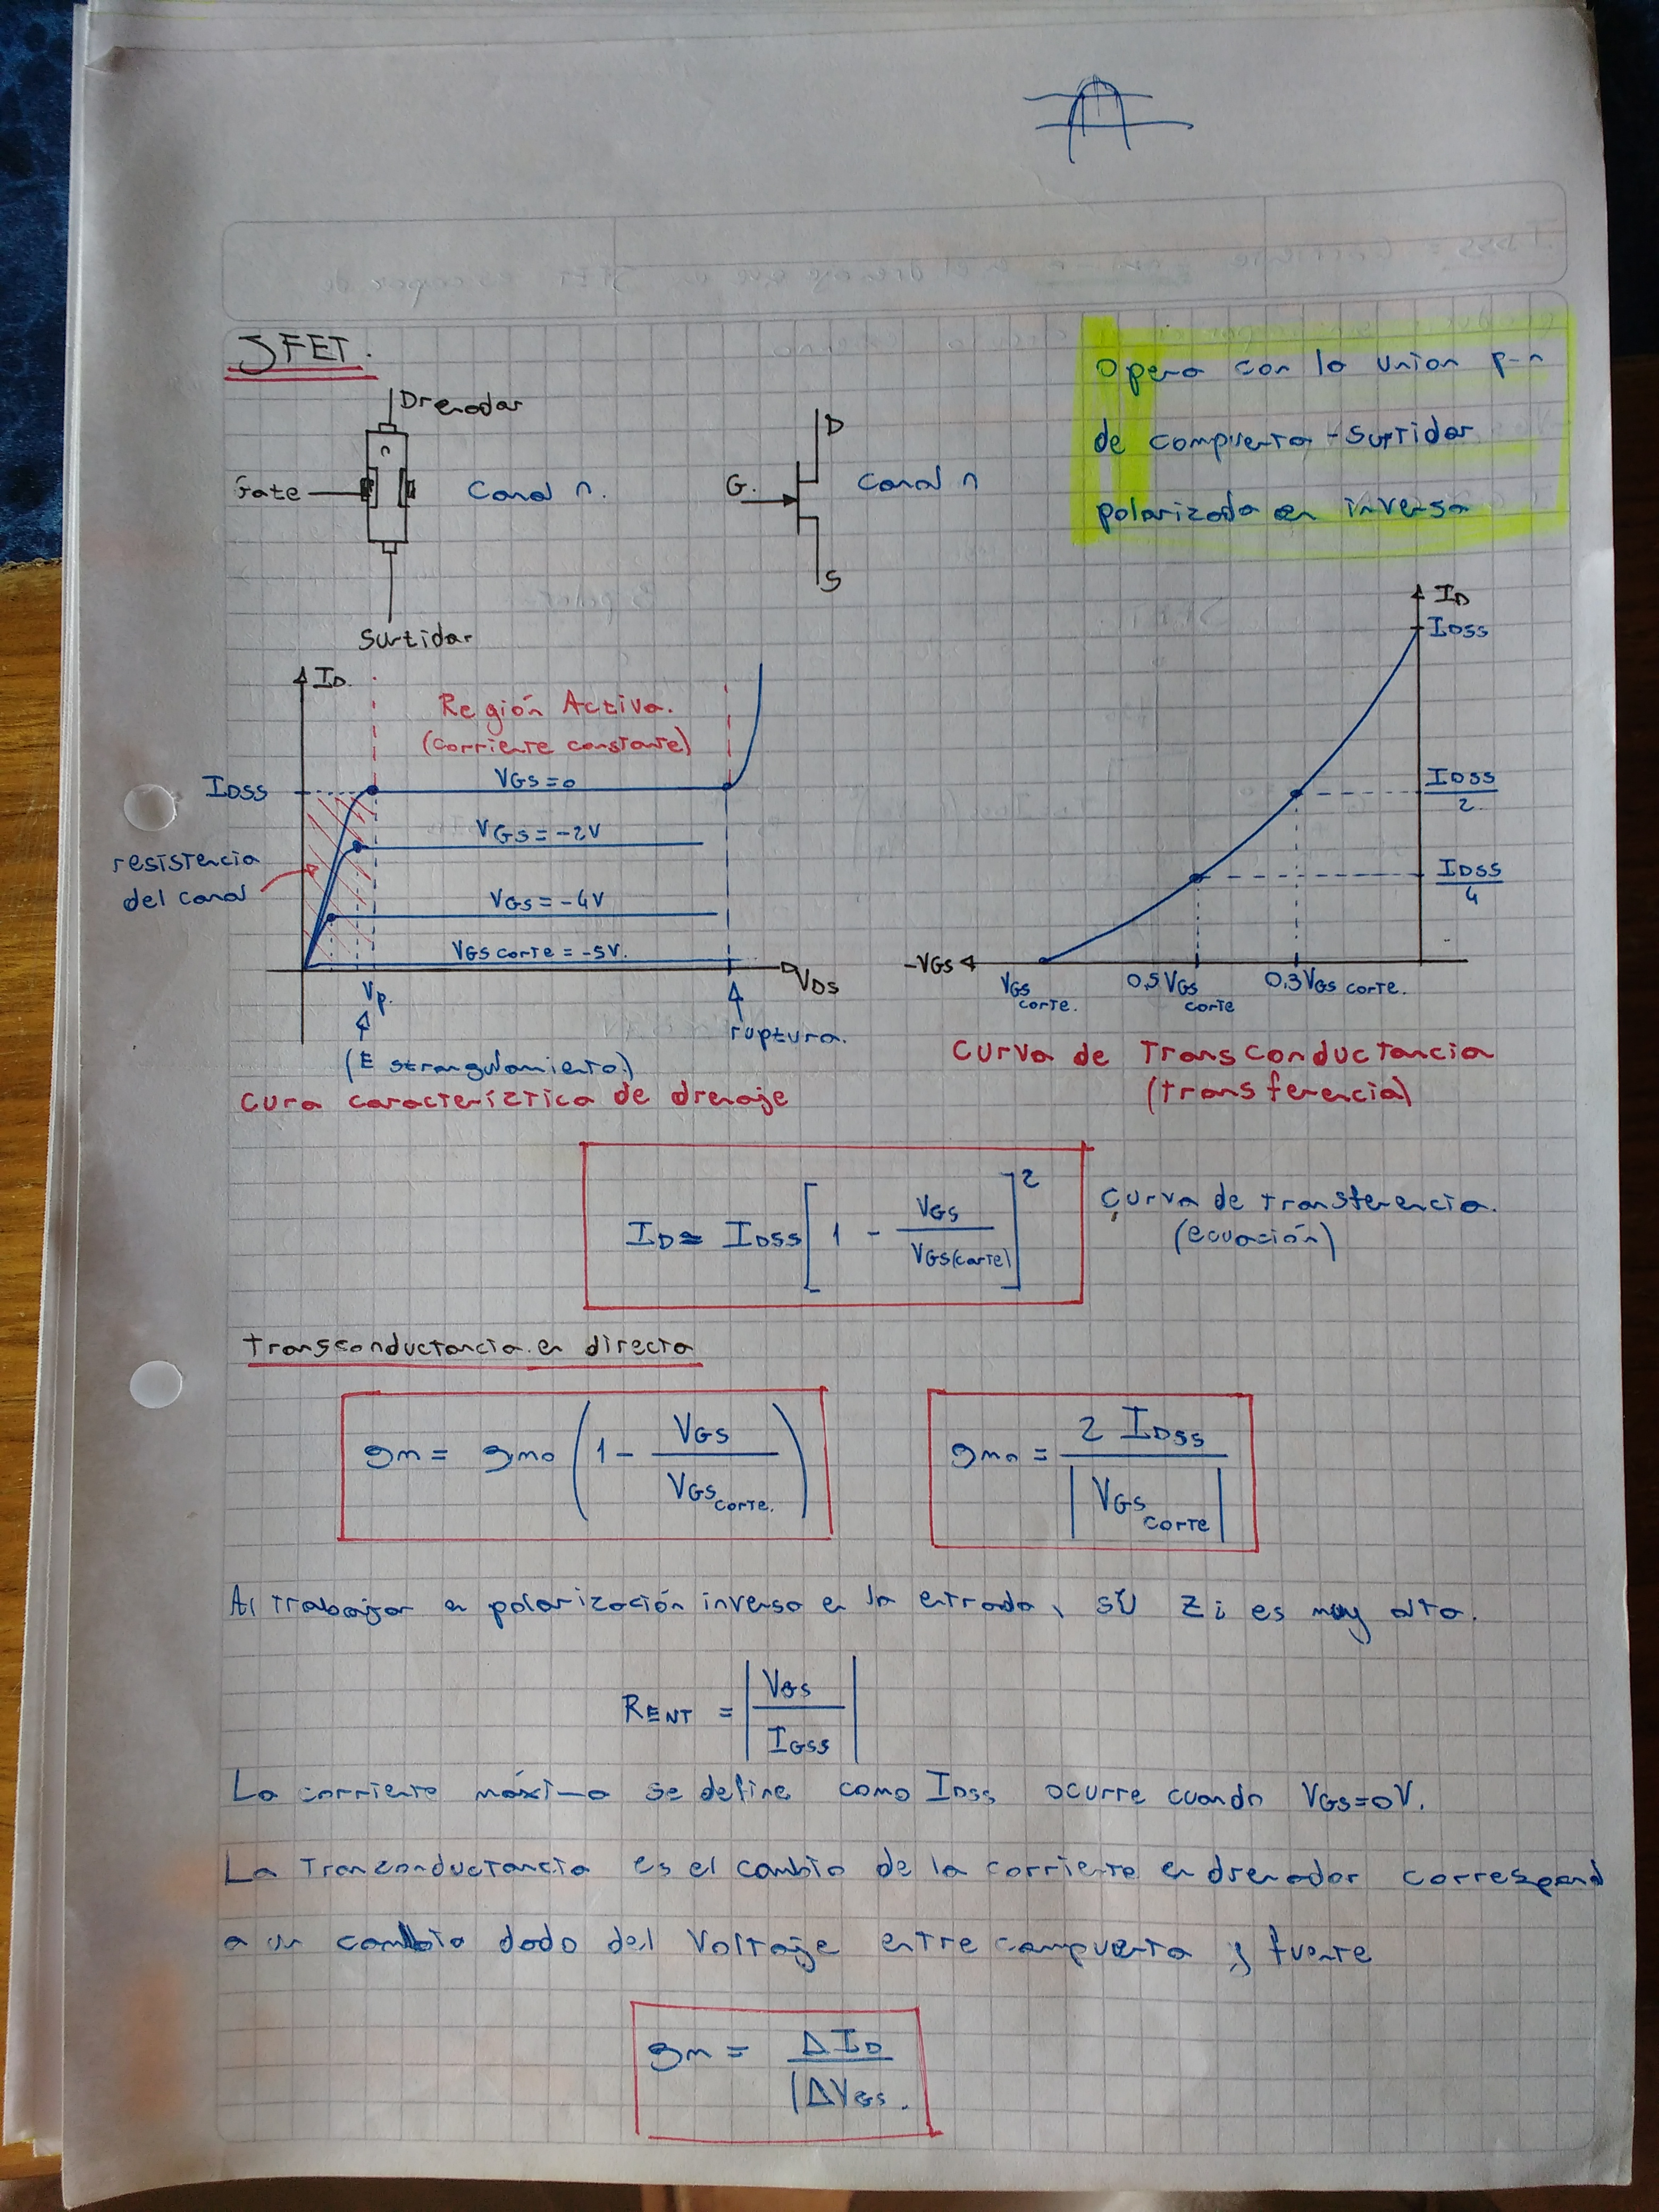 JFET.
Drenador
Gate
n
Canal n.
Surtidor
D
G.
Canal n
S
Opera con la union p-n
de compuerta - Surtidor
polarizada en inversa
ID
Región Activa.
(corriente constante)
IDSS
VGS = 0
VGS = -2V
VGS = -4V
VGS corte = -5V.
resistencia
del canal
VDS
Vp.
ruptura.
(Estrangulamiento.)
cura caracteríztica de drenaje
ID
IDSS
IDSS/2.
IDSS/4
-VGS
VGS corte.
0,5 VGS corte
0,3 VGS corte.
Curva de Transconductancia
(transferencia)
ID ≈ IDSS [1 - VGS/VGS(corte)]²
Curva de transferencia.
(ecuación)
Transconductancia en directa
gm = gmo (1 - VGS/VGS corte.)
gmo = 2 IDSS/|VGS corte|
Al trabajar en polarización inversa en la entrada, sú Zi es muy alta.
RENT = |VGS/IGSS|
La corriente máxima se define como IDSS ocurre cuando VGS=0V.
La Tranzonductancia es el cambio de la corriente en drenador correspond
a un cambio dado del Voltaje entre compuerta y fuente
gm = ΔID/|ΔVGS.